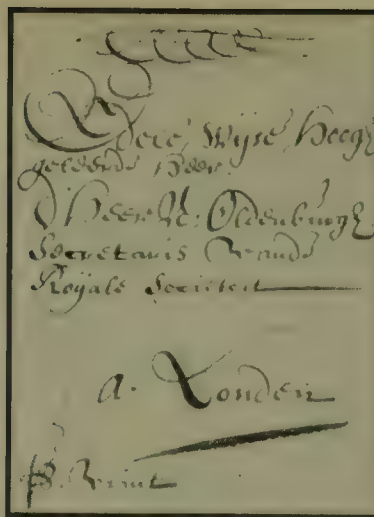 Edele, Wijse, Hoogh
geleerde Heer.
D'Heer H: Oldenburgh
Secretaris vande
Royale Societeit
a. Londen